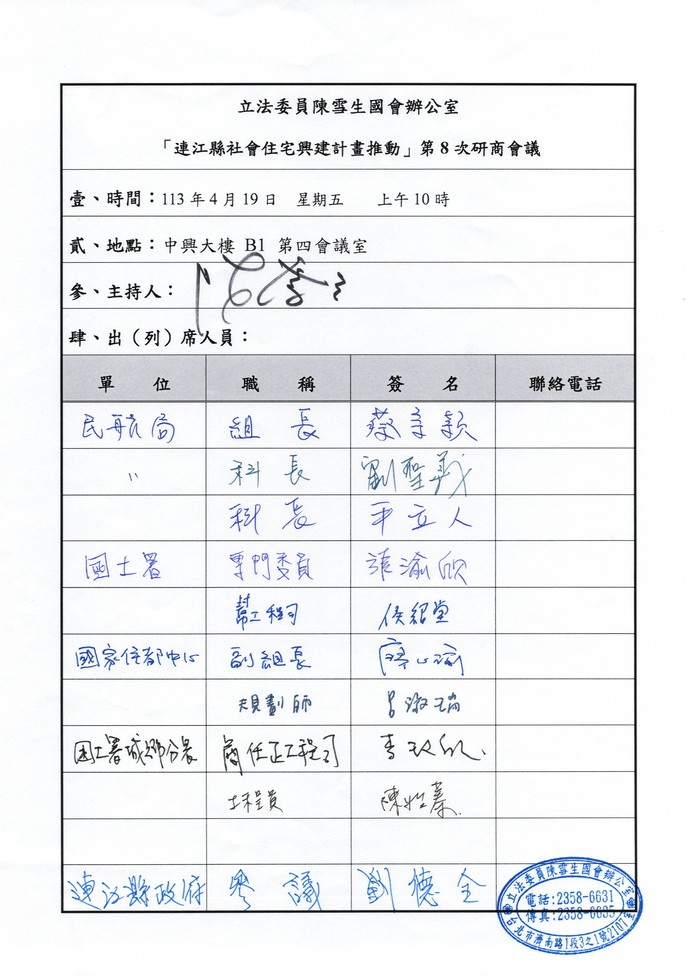 立法委員陳雪生國會辦公室
「連江縣社會住宅興建計畫推動」第8次研商會議
壹、時間：113年4月19日 星期五 上午10時
貳、地點：中興大樓 B1 第四會議室
參、主持人：
肆、出（列）席人員：
單 位 職 稱 簽 名 聯絡電話
民航局 組 長 蔡 穎
〃 科 長 劉聖義
科 長 平立人
國土署 專門委員 張渝欣
幫工程司 侯紹堂
國家住都中心 副組長 廖
規劃師 呂淑瑞
國土署城鄉分署 簡任正工程司
工程員 陳怡蓁
連江縣政府 參 議 劉德全
立法委員陳雪生國會辦公室
電話:2358-6631
傳真:2358-6635
台北市濟南路1段3之1號2107